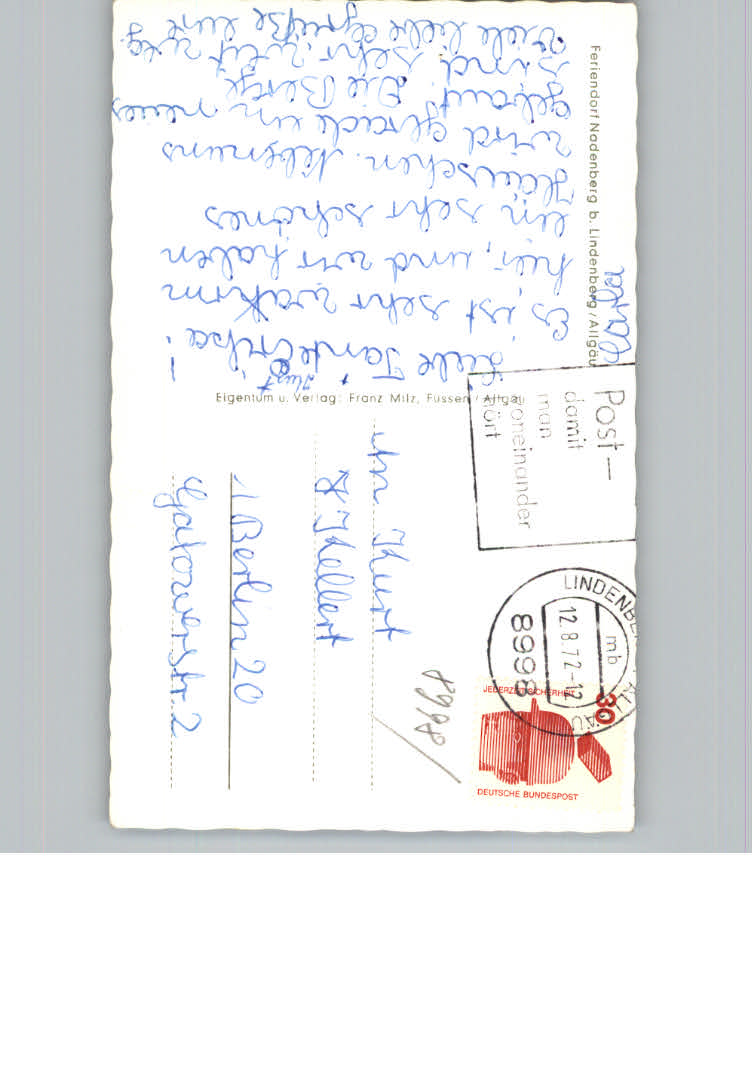 Feriendorf Nadenberg b. Lindenberg/Allgäu
Liebe Tante Erika!
+ Kurt
Es ist sehr warm
hier, und wir haben
ein sehr schönes
Häuschen. Neben uns
wird gerade ein neues
gebaut. Die Berge
sind sehr weit weg
Viele liebe Grüße eure
Eigentum u. Verlag: Franz Milz, Füssen/Allgäu
Post—
damit
man
voneinander
hört
LINDENBERG ALLGÄU
mb
12.8.72-12
8998
30
JEDERZEIT SICHERHEIT
DEUTSCHE BUNDESPOST
Kurt
Kellert
1 Berlin 20
Gatowerstr. 2